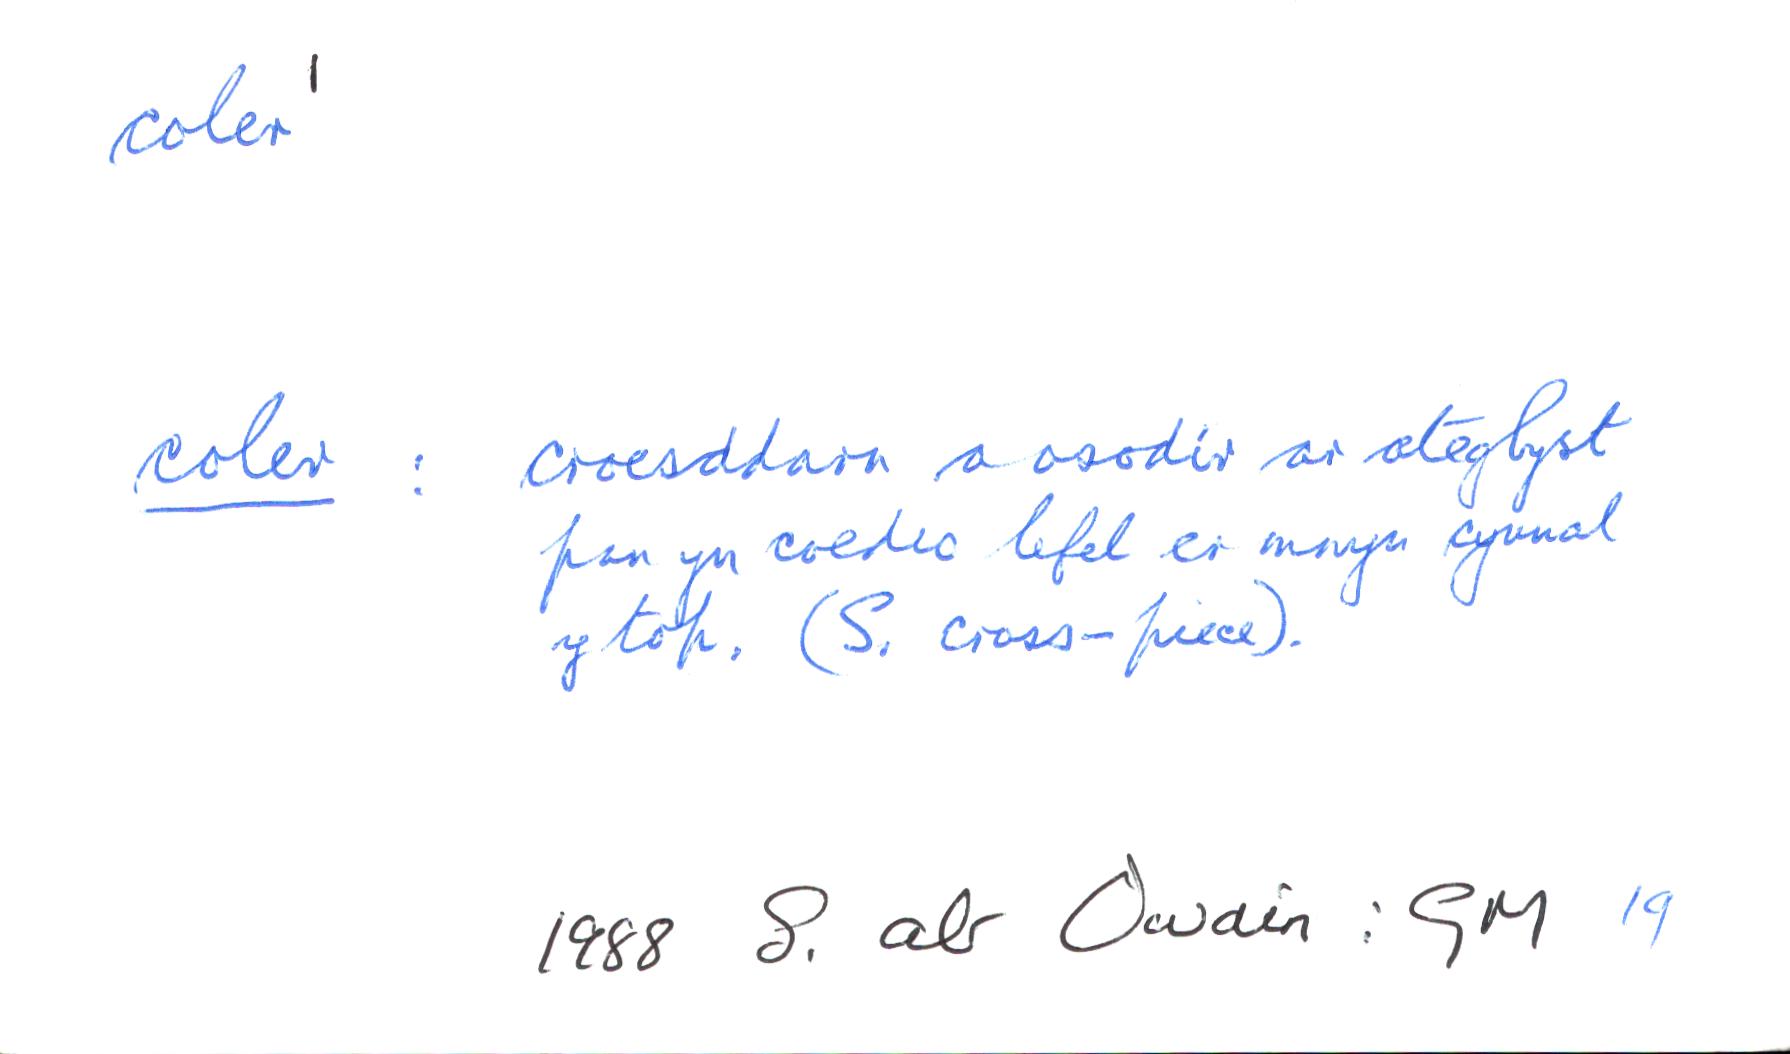 coler¹
coler : croesddarn a osodir ar ateglyst
pan yn coedio lefel er mwyn cynnal
y top. (S. cross-piece).
1988 S. ab Owain : GM 19